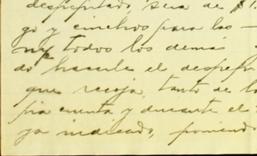 despepitado, sea de $1
go y cinchos para las
todos los demá
do hacerle el despep
que recoja, tanto de la
pia cuenta y durante el
ya indicado, poniendo